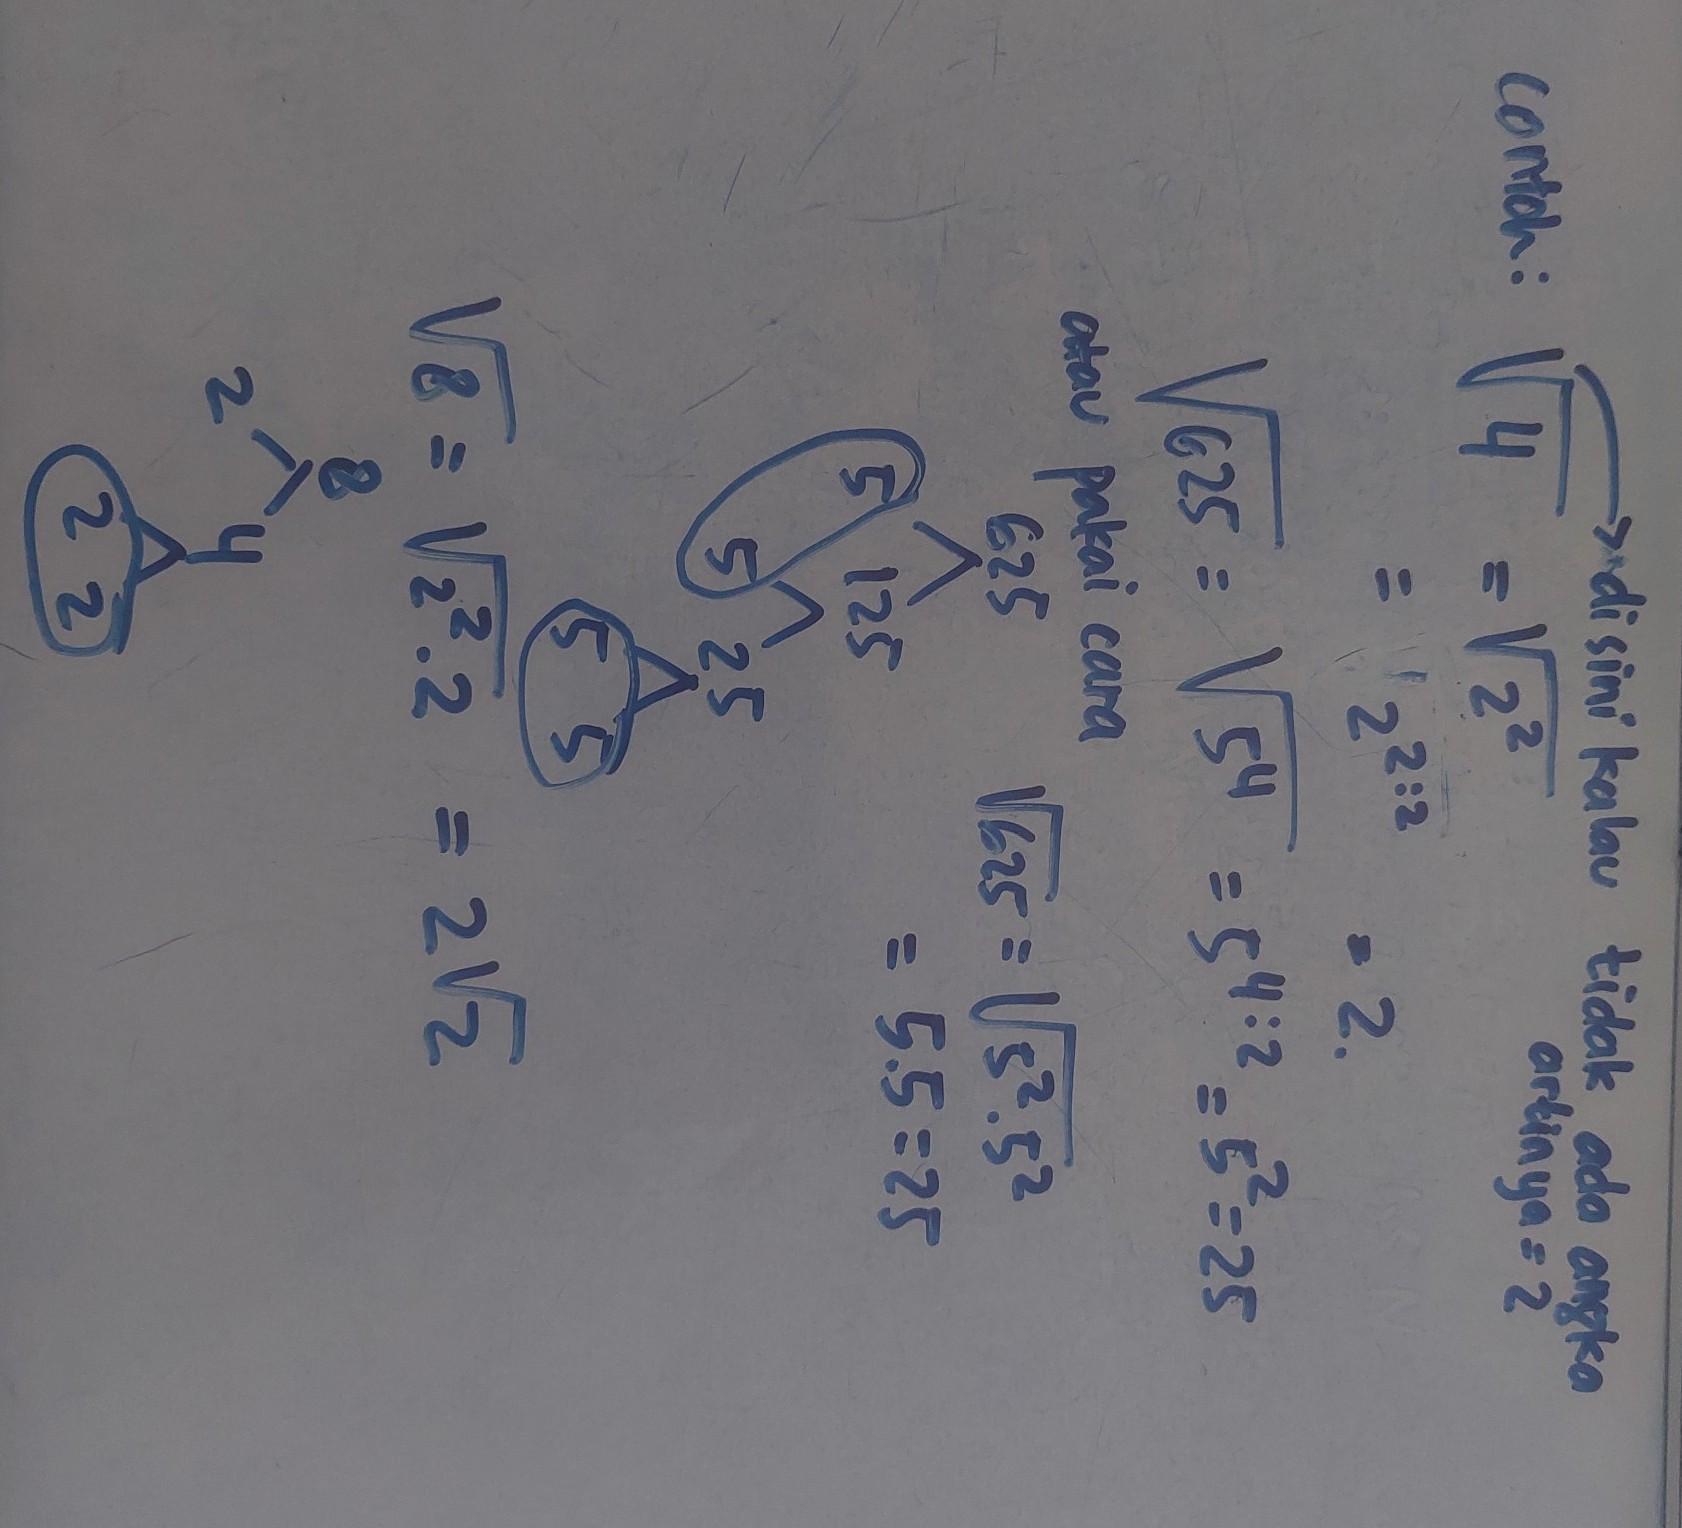 contoh: √4 = √2² → disini kalau tidak ada angka
artinya = 2
= 2²:² = 2.
√625 = √5⁴ = 5⁴:² = 5² = 25
atau pakai cara
625
5 125
5 25
5 5
√625 = √5².5²
= 5.5 = 25
√8 = √2².2 = 2√2
8
2 4
2 2